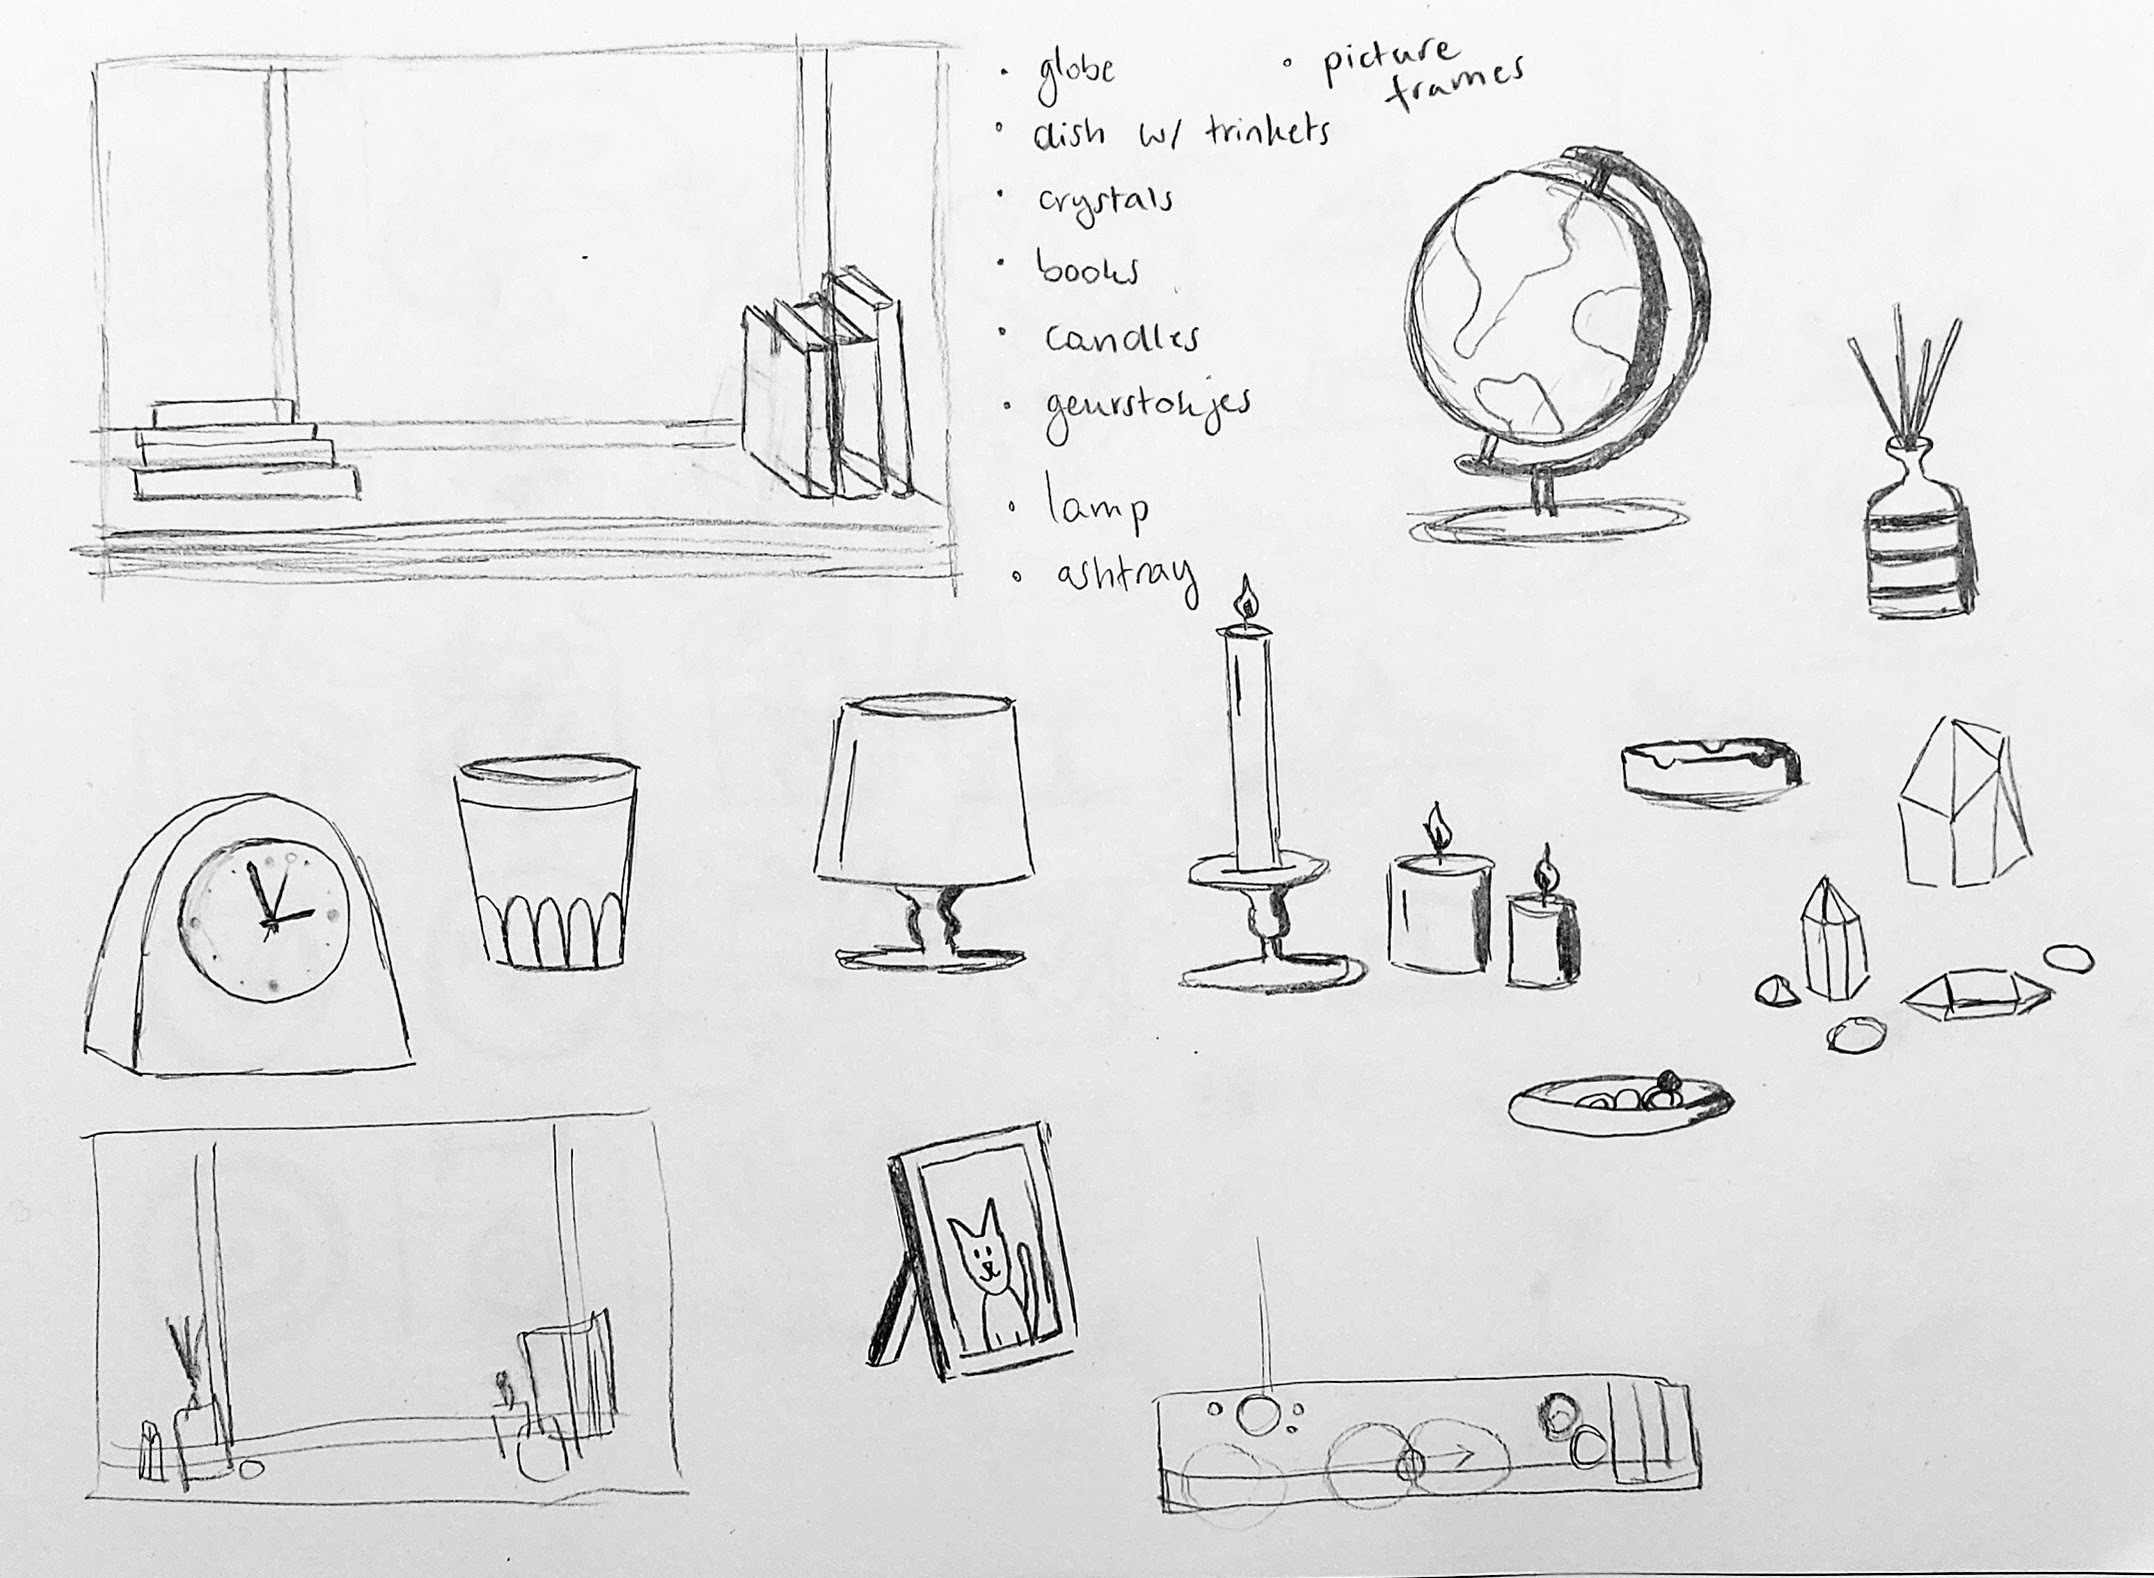 • globe
• dish w/ trinkets
• crystals
• books
• candles
• geurstokjes
• lamp
• ashtray
• picture
frames